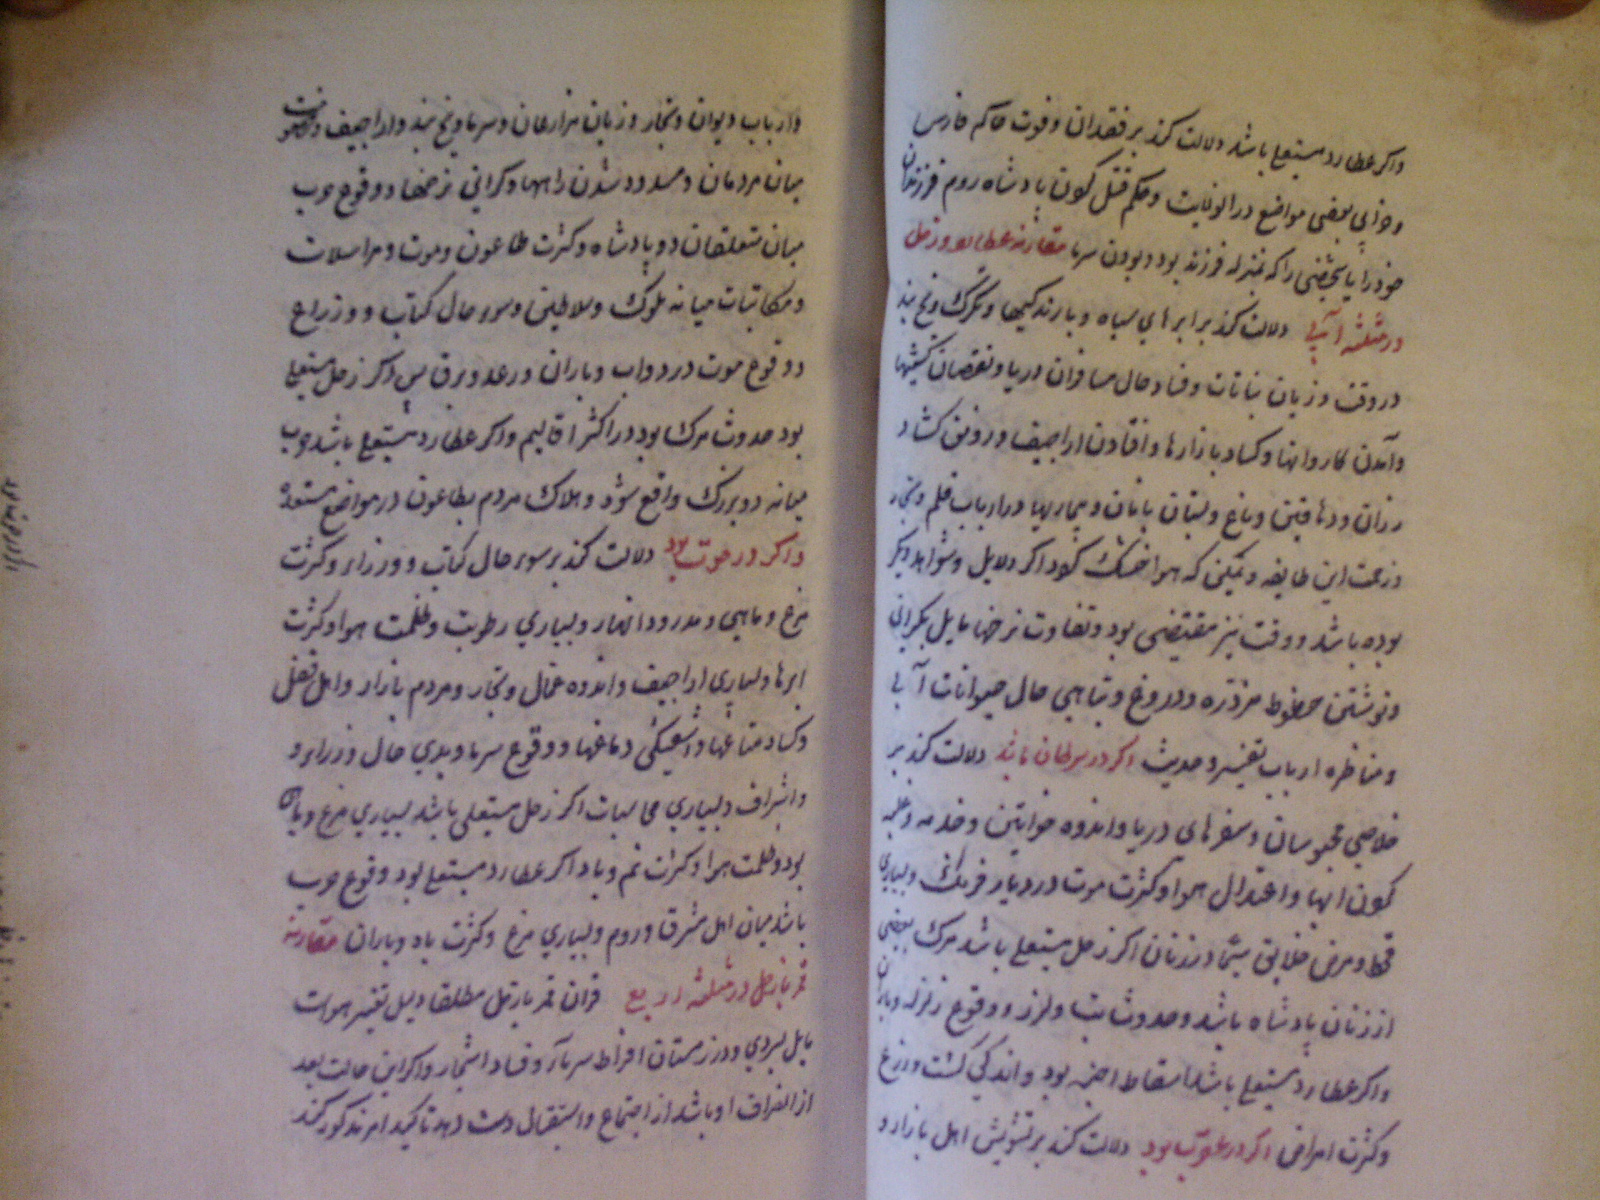 واکر عطارد مستعلی باشد دلالت کند بر فقدان و فوت حاکم فارس
و خرابی بعضی مواضع در الولایت و حکم قتل کردن پادشاه روم فرزندان
خود را یا شخصی را که بمنزله فرزند بود و بودن سرما مقارنه عطارد و زحل
در مثلثه آبی دلالت کند بر ابرهای سیاه و بارندکیها و تکرک و یخ بند
در وقت و زیان نباتات و فساد حال مسافران دریا و نقصان کشتیها
و آمدن کاروانها و کساد بازارها و افتادن اراجیف و رونق کشاد
رزان و دهاقین و باغ و بستان بانان و بیماریها در ارباب قلم و تجار
و زحمت این طایفه و تمکین که هوا خشک کردد اکر دلایل و شواهد دیکر
بوده باشد و وقت نیز مقتضی بود و تفاوت نرخها مایل بکرانی
و نوشتن خطوط مزوره و دروغ و تباهی حال حیوانات آبی
و مناظره ارباب تفسیر و حدیث اکر در سرطان باشد دلالت کند بر
خلاصی محبوسان و سفرهای دریا و اندوه خواتین و خدمه و غلبه
کردن ابها و اعتدال هوا و کثرت موت در دیار فرنک و بسیاری
قحط و مرض خلایق سیما در زنان اکر زحل مستعلی باشد مرک بعضی
از زنان پادشاه باشد و حدوث تب و لرز و وقوع زلزله و باران
واکر عطارد مستعلی باشد اسقاط اجنه بود و اندکی کشت و زرع
و کثرت امراض اکر در عقرب بود دلالت کند بر تشویش اهل بازار و
و ارباب دیوان و تجار و زیان مزارعان و سرما و یخ بند و اراجیف و خصومت
میان مردمان و مسدود شدن راهها و کرانی نرخها و وقوع حرب
میان متعلقان دو پادشاه و کثرت طاعون و موت و مراسلات
و مکاتبات میانه ملوک و سلاطین و سوء حال کتاب و وزراء
و وقوع موت در دواب و باران و رعد و برق پس اکر زحل مستعلی
بود حدوث مرک بود در اکثر اقالیم واکر عطارد مستعلی باشد حرب
میانه دو بزرک واقع شود و هلاک مردم بطاعون در مواضع متعدده
واکر در حوت بود دلالت کند بر سوء حال کتاب و وزراء و کثرت
مرغ و ماهی و مدرود انهار و بسیاری رطوبت و ظلمت هوا و کثرت
ابرها و بسیاری اراجیف و اندوه عمال و تجار و مردم بازار و اهل
و کساد متاعها و آشفتکی دماغها و وقوع سرما و بدی حال وزراء و
و اشراف و بسیاری محاسبات اکر زحل مستعلی باشد بسیاری مرغ و
بود و ظلمت هوا و کثرت نم و باد اکر عطارد مستعلی بود وقوع حرب
باشد میان اهل مشرق و روم و بسیاری مرغ و کثرت باد و باران مقارنه
قمر با زحل در مثلثه قران قمر با زحل مطلقا دلیل تغییر هواست
مایل بسردی و در زمستان افراط سرما و فساد اشجار واکر این حالت بعد
از انصراف او باشد از اجتماع و استقبال دست دهد تاکید امر مذکور کند